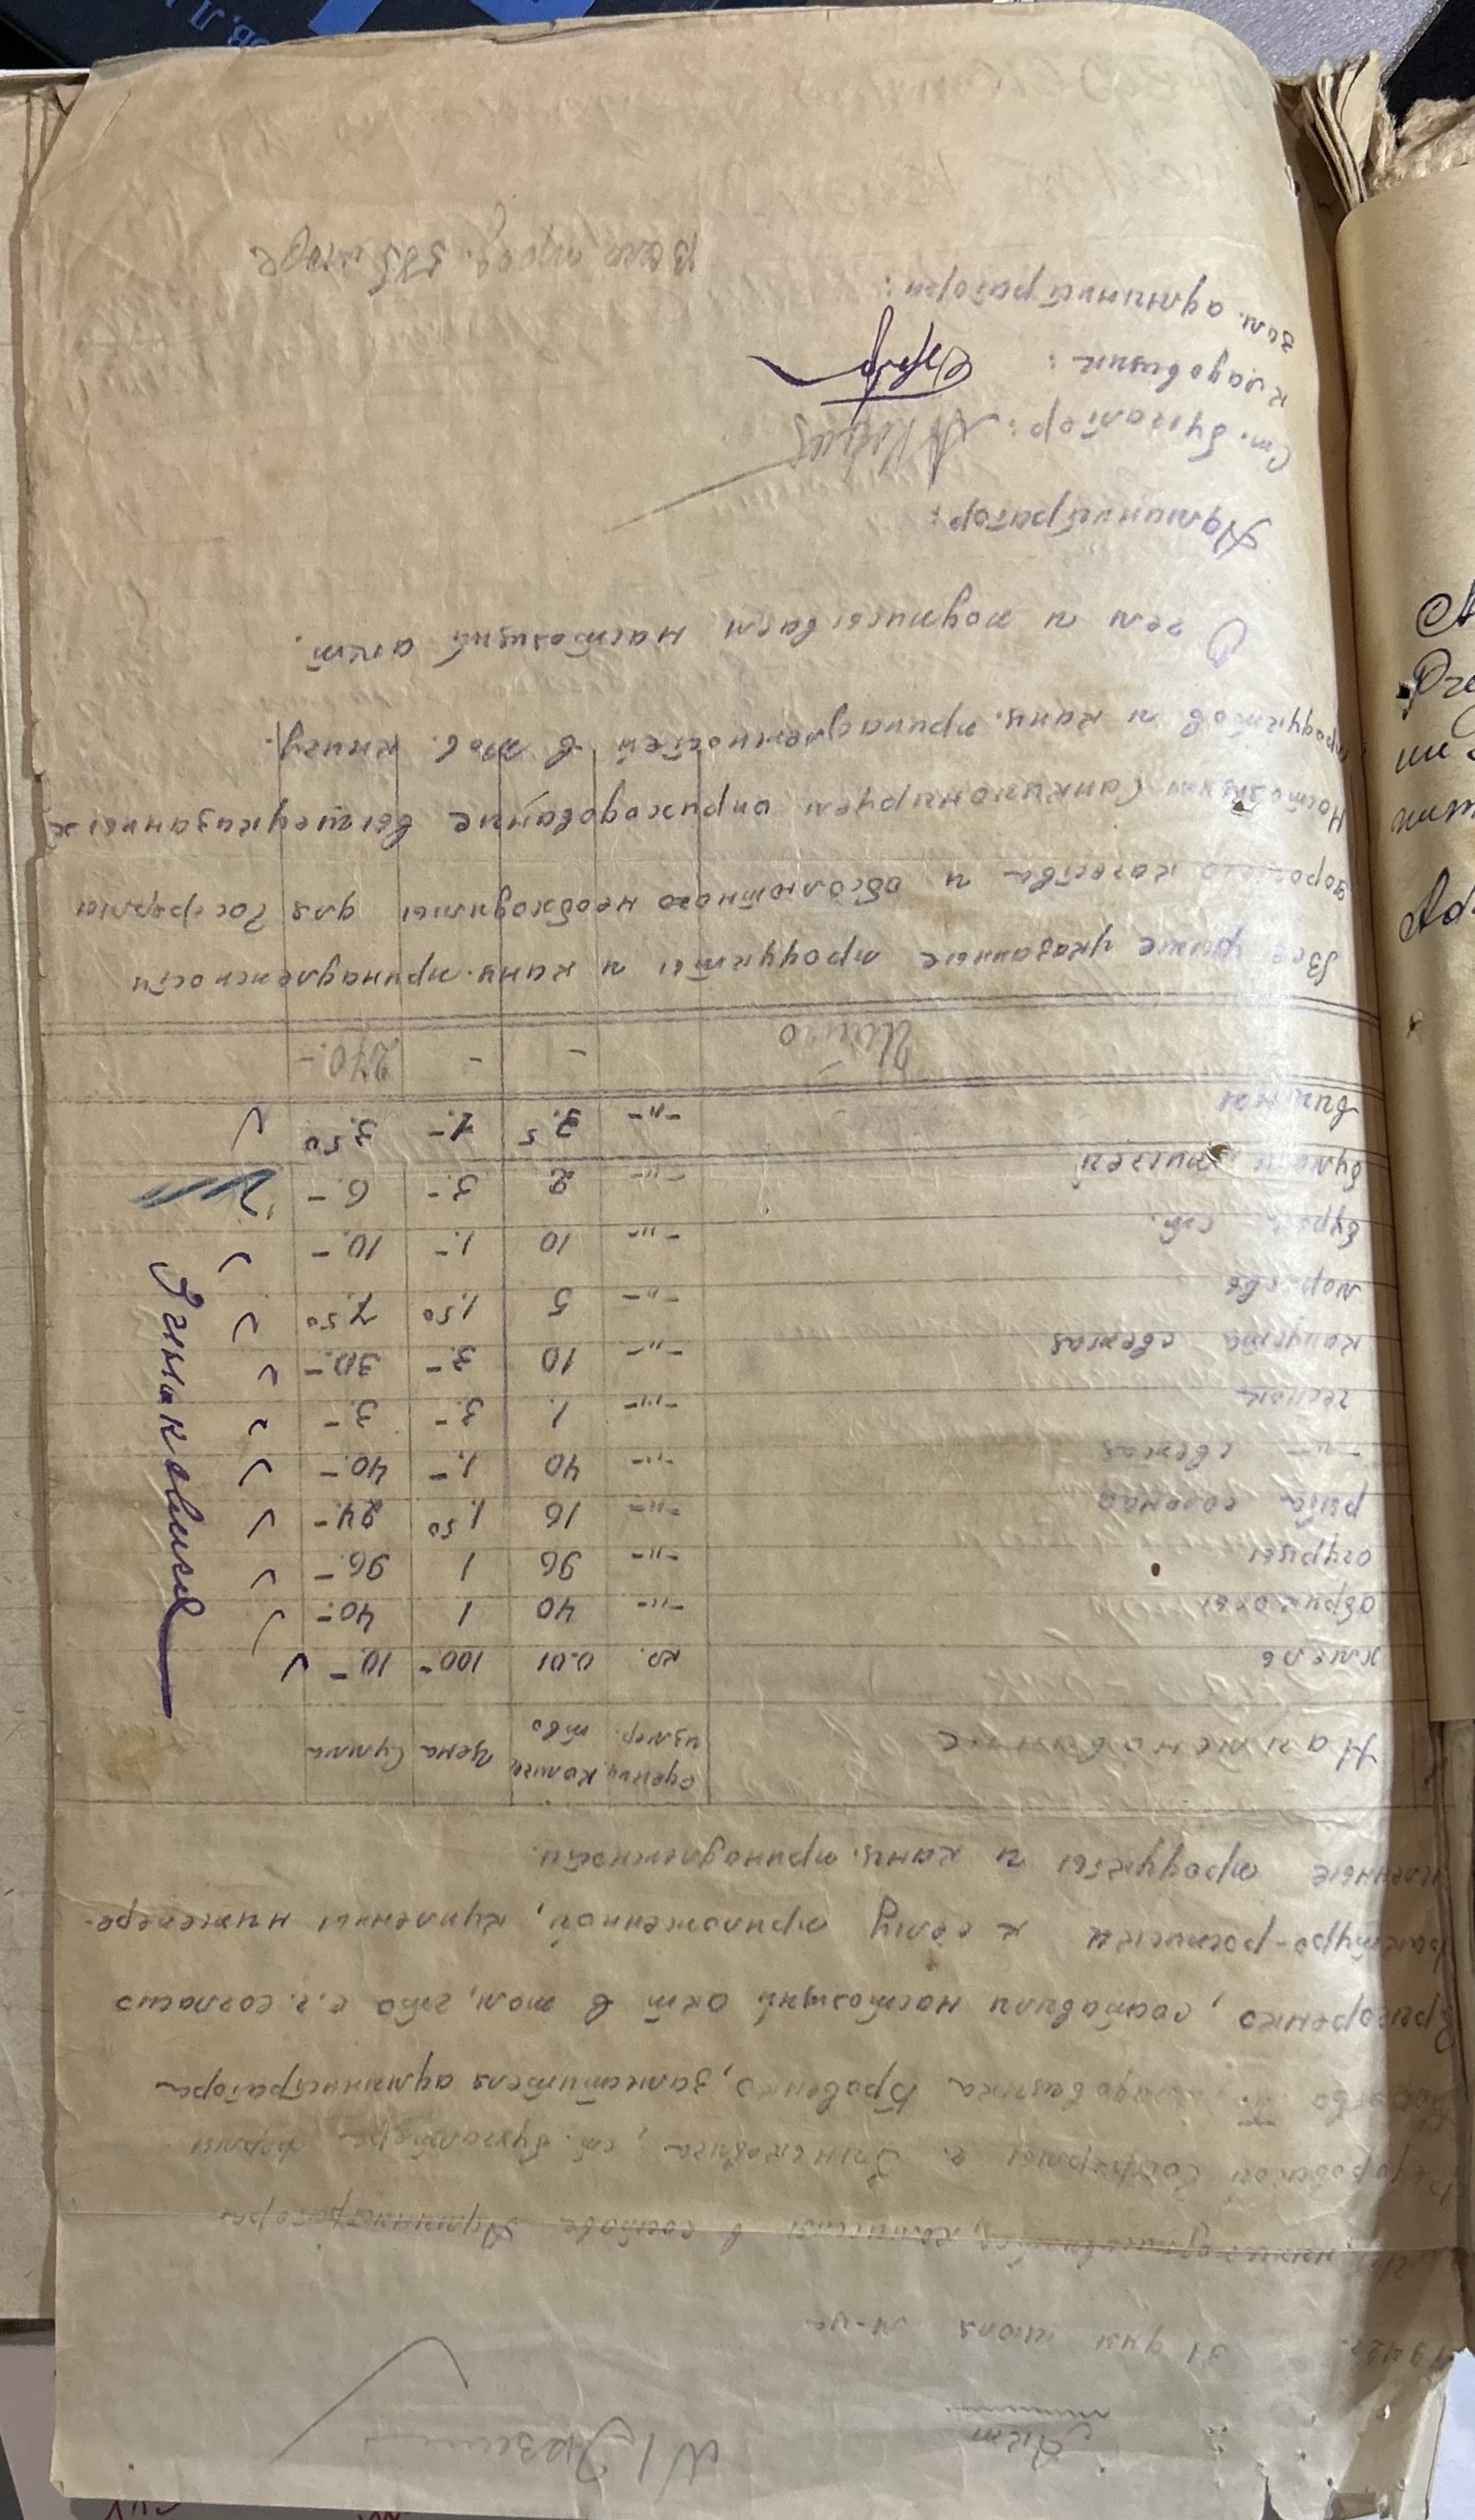 Акт
1942г. 31 дня июля м-ца
Мы, нижеподписавшиеся, комиссия в составе Администратора
Федоровской Госфермы г. Зинькович, ст. бухгалтера фермы
кладовщика Бровенко, заместителя администратора
Григоренко, составили настоящий акт в том, что с.г. согласно
фактуро-росписки к сему приложенной, куплены нижепере-
численные продукты и канц. принадлежности.
Наименование Единиц. измер. Количество Цена Сумма
хмель кг. 0.01 100.- 10.-
абрикосы -"- 40 1 40.-
огурцы -"- 96 1 96.-
рыба соленая -"- 16 1.50 24.-
-"- свежая -"- 40 1.- 40.-
чеснок -"- 1. 3.- 3.-
капуста свежая -"- 10 3.- 30.-
морковь -"- 5 1.50 7.50
буряк ст. -"- 10 1.- 10.-
бумаги писчей -"- 2 3.- 6.-
вишня -"- 3.5 1.- 3.50
Итого - - 270.-
Все указанные продукты и канц. принадлежности
хорошего качества и абсолютного необходимы для Госфермы
Настоящим санкционируем оприходование вышеуказанных
продуктов и канц. принадлежностей в мат. книгу.
О чем и подписываем настоящий акт.
Администратор:
Ст. бухгалтер:
кладовщик:
зам. администратора: